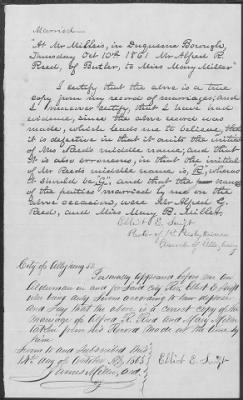 Married—
"At Mr Millers, in Duquesne Borough,
Thursday Oct 10th 1861 Mr Alfred R.
Reed, of Butler, to Miss Mary Miller"
I certify that the above is a true
copy from my record of marriages; and I
moreover certify, that I have had
evidence, since the above record was
made, which leads me to believe, that
it is defective in that it omits the initial
of Mrs Reeds middle name; and that
it is also erroneous, in that the initial
of Mr Reeds middle name is, R, where
it should be G, and that the names
of the parties married by me on the
above occasion, were Mr Alfred G.
Reed, and Miss Mary B. Miller.
Elliot E. Swift
Pastor of 1st Presbyterian
Church of Allegheny
City of Allegheny ss.
Personally appeared before me an
Alderman in and for said City Rev Elliot E Swift
who being duly Sworn according to law deposes
and Say that the above is a correct copy of the
marriage of Alfred G. Reed and Mary Miller
taken from his Record made at the time by
him
Sworn to and Subscribed this
14th day of October AD 1863
Elliot E. Swift